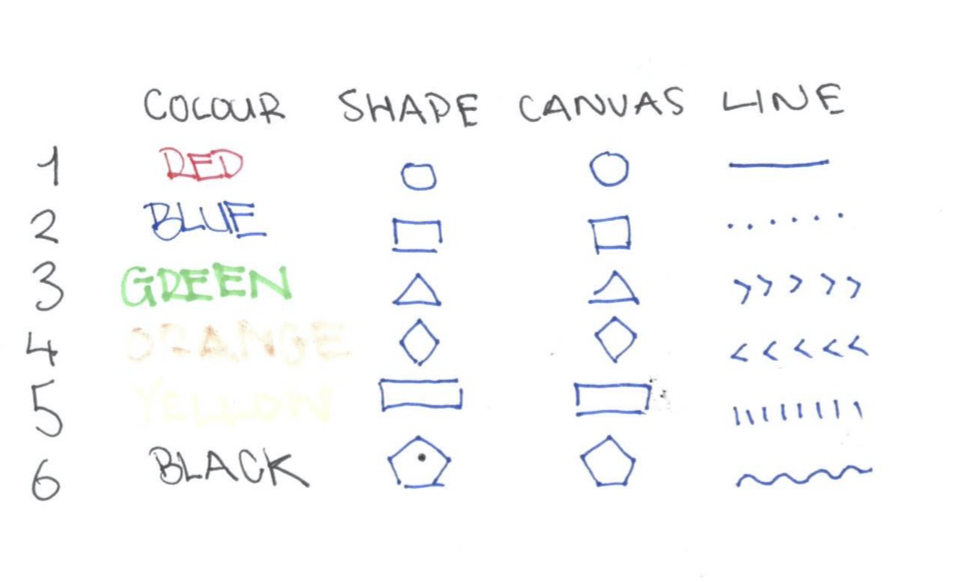 COLOUR SHAPE CANVAS LINE
1 RED
2 BLUE
3 GREEN
4 ORANGE
5 YELLOW
6 BLACK